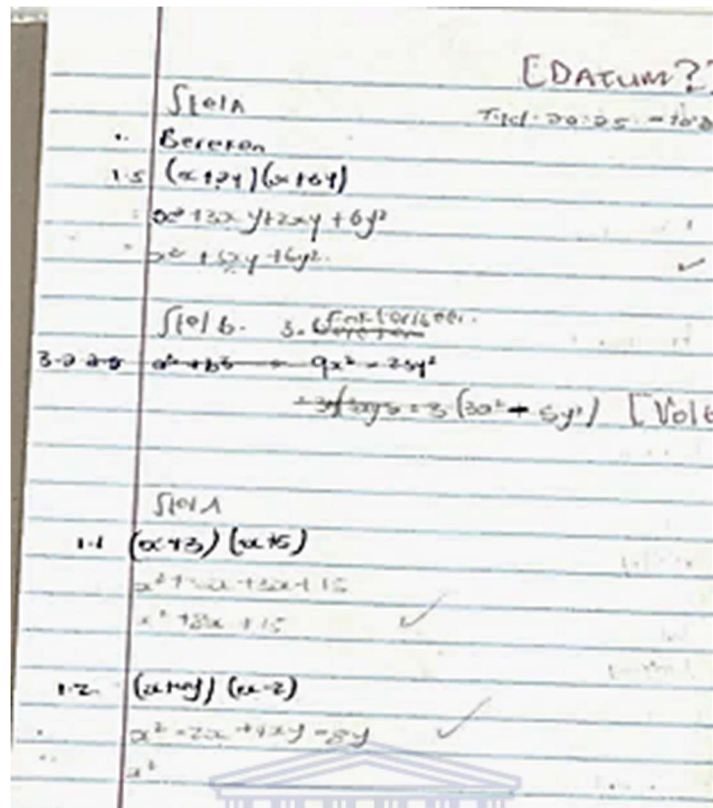 [DATUM?]
Stel A
Tyd: 20:25 -
Bereken
1.5 (x+2y)(x+6y)
x²+3xy+2xy+6y²
x²+5xy+6y².
✓
Stel b. 3.
3.2 2.5 a²+b² 9x² - 25y²
(3x² + 5y²) [Vol
Stel A
1.1 (x+3)(x+5)
x²+5x+3x+15
x²+8x+15 ✓
1.2. (x+4y)(x-2)
x²-2x+4xy-8y ✓
x²